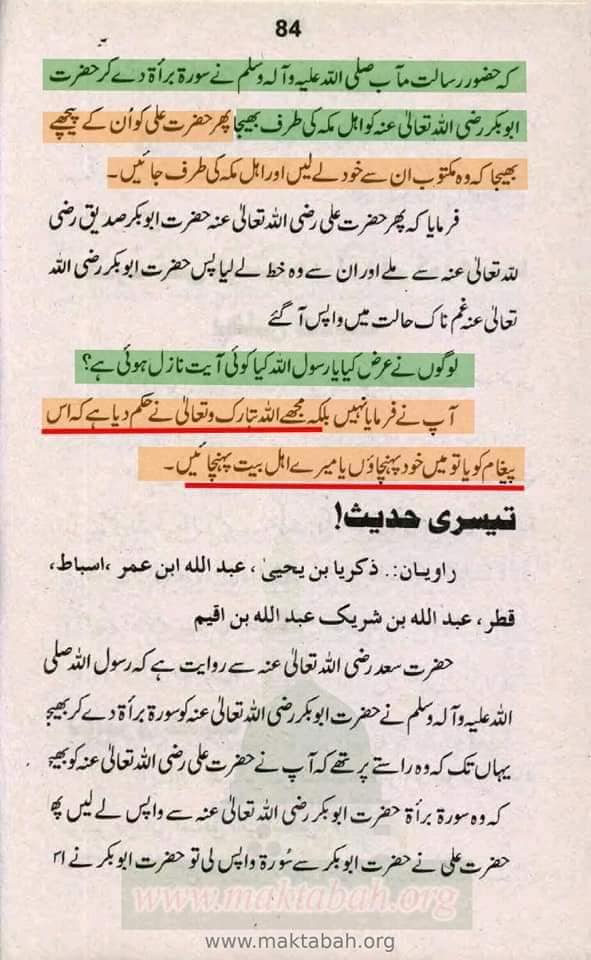 84
کہ حضور رسالت مآب صلی اللہ علیہ وآلہ وسلم نے سورۃ برأۃ دے کر حضرت
ابوبکر رضی اللہ تعالیٰ عنہ کو اہل مکہ کی طرف بھیجا پھر حضرت علی کو اُن کے پیچھے
بھیجا کہ وہ مکتوب ان سے خود لے لیں اور اہل مکہ کی طرف جائیں۔
فرمایا کہ پھر حضرت علی رضی اللہ تعالیٰ عنہ حضرت ابوبکر صدیق رضی
للہ تعالیٰ عنہ سے ملے اور ان سے وہ خط لے لیا پس حضرت ابوبکر رضی اللہ
تعالیٰ عنہ غم ناک حالت میں واپس آگئے
لوگوں نے عرض کیا یا رسول اللہ کیا کوئی آیت نازل ہوئی ہے؟
آپ نے فرمایا نہیں بلکہ مجھے اللہ تبارک وتعالیٰ نے حکم دیا ہے کہ اس
پیغام کو یا تو میں خود پہنچاؤں یا میرے اہل بیت پہنچائیں۔
تیسری حدیث!
راویان:. ذکریا بن یحییٰ، عبد الله ابن عمر، اسباط،
قطر، عبد الله بن شریک عبد الله بن اقیم
حضرت سعد رضی اللہ تعالیٰ عنہ سے روایت ہے کہ رسول اللہ صلی
اللہ علیہ وآلہ وسلم نے حضرت ابوبکر رضی اللہ تعالیٰ عنہ کو سورۃ برأۃ دے کر بھیجا
یہاں تک کہ وہ راستے پر تھے کہ آپ نے حضرت علی رضی اللہ تعالیٰ عنہ کو
کہ وہ سورۃ برأۃ حضرت ابوبکر رضی اللہ تعالیٰ عنہ سے واپس لے لیں
حضرت علی نے حضرت ابوبکر سے سُورۃ واپس لی تو حضرت ابوبکر نے
www.maktabah.org
www.maktabah.org